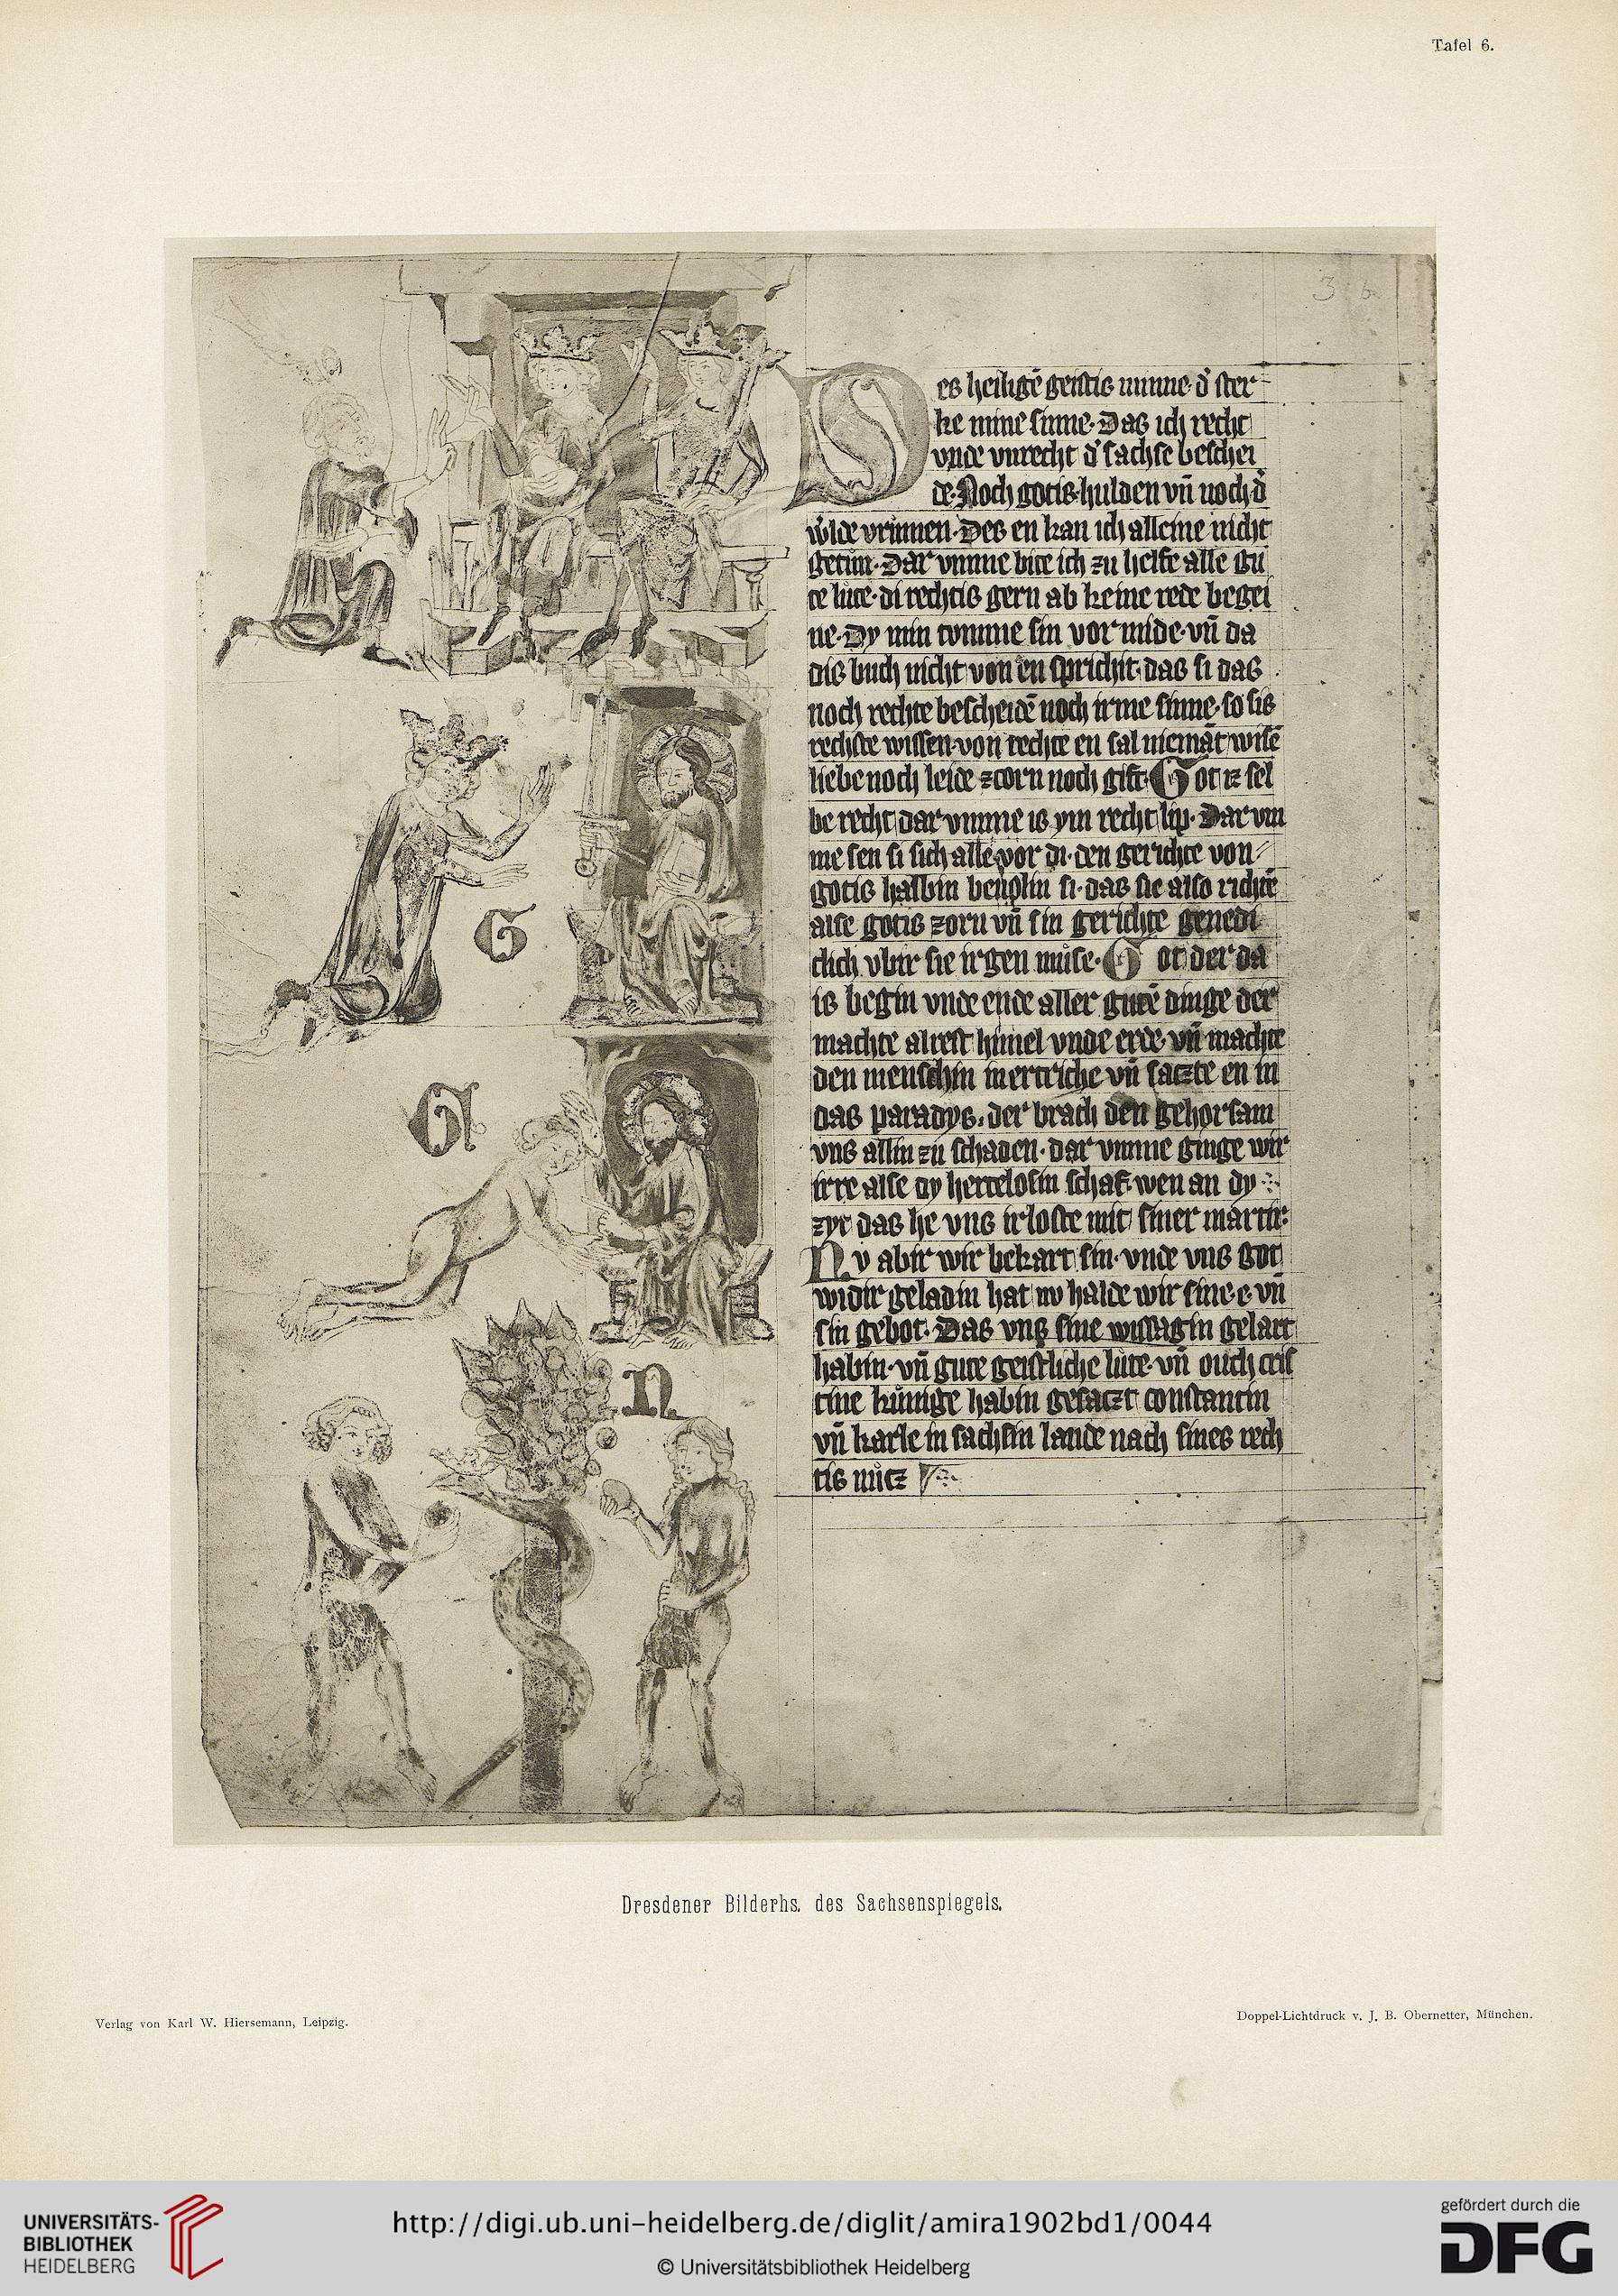 Tafel 6.
3 b
Des heiligē geistis minne d' ster
ke mine sinne. Das ich recht
vnde vnrecht d' sachse beschei
de. Noch gotis hulden vn̄ noch d'
w'lde vrumen. Des en kan ich alleine nicht
getun. Dar vmme bite ich zu helfe alle gu
te lute. di rechtis gern ab keine rede begei
ne. Dy min tumme sin vor mide. vn̄ da
dis buch nicht von en spricht. das si das
noch rechte bescheidē noch irme sinne. so sis
rechste wissen. von rechte en sal niemāt wisē
liebe noch leide zcorn noch gift. Got iz sel
be recht dar vmme is ym recht lip. Dar vm
me sen si sich alle vor di. den gerichte von
gotis halbin beuolin si. das sie also richtē
alse gotis zorn vn̄ sin gerichte genedi
clich vbir sie irgen muse. Got der da
is begin vnde ende aller gutē dinge der
machte alrest himel vnde erde. vn̄ machte
den menschin in ertriche vn̄ satzte en in
das paradys. der brach den gehorsam
vns allin zu schaden. dar vmme ginge wir
irre alse dy hertelosin schaf. wen an dy
zyt das he vns irloste mit siner martir.
Nv abir wir bekart sin. vnde vns got
widir geladin hat nv halde wir sine e vn̄
sin gebot. Das vns sine wissagin gelart
habin. vn̄ gute geistliche lute. vn̄ ouch cris
tine kunige habin gesatzt constantin
vn̄ karle in sachsin lande nach sines rech
tis nutz
G
G
N
Dresdener Bilderhs. des Sachsenspiegels.
Verlag von Karl W. Hiersemann, Leipzig.
Doppel-Lichtdruck v. J. B. Obernetter, München.
UNIVERSITÄTS-
BIBLIOTHEK
HEIDELBERG
http://digi.ub.uni-heidelberg.de/diglit/amira1902bd1/0044
© Universitätsbibliothek Heidelberg
gefördert durch die
DFG